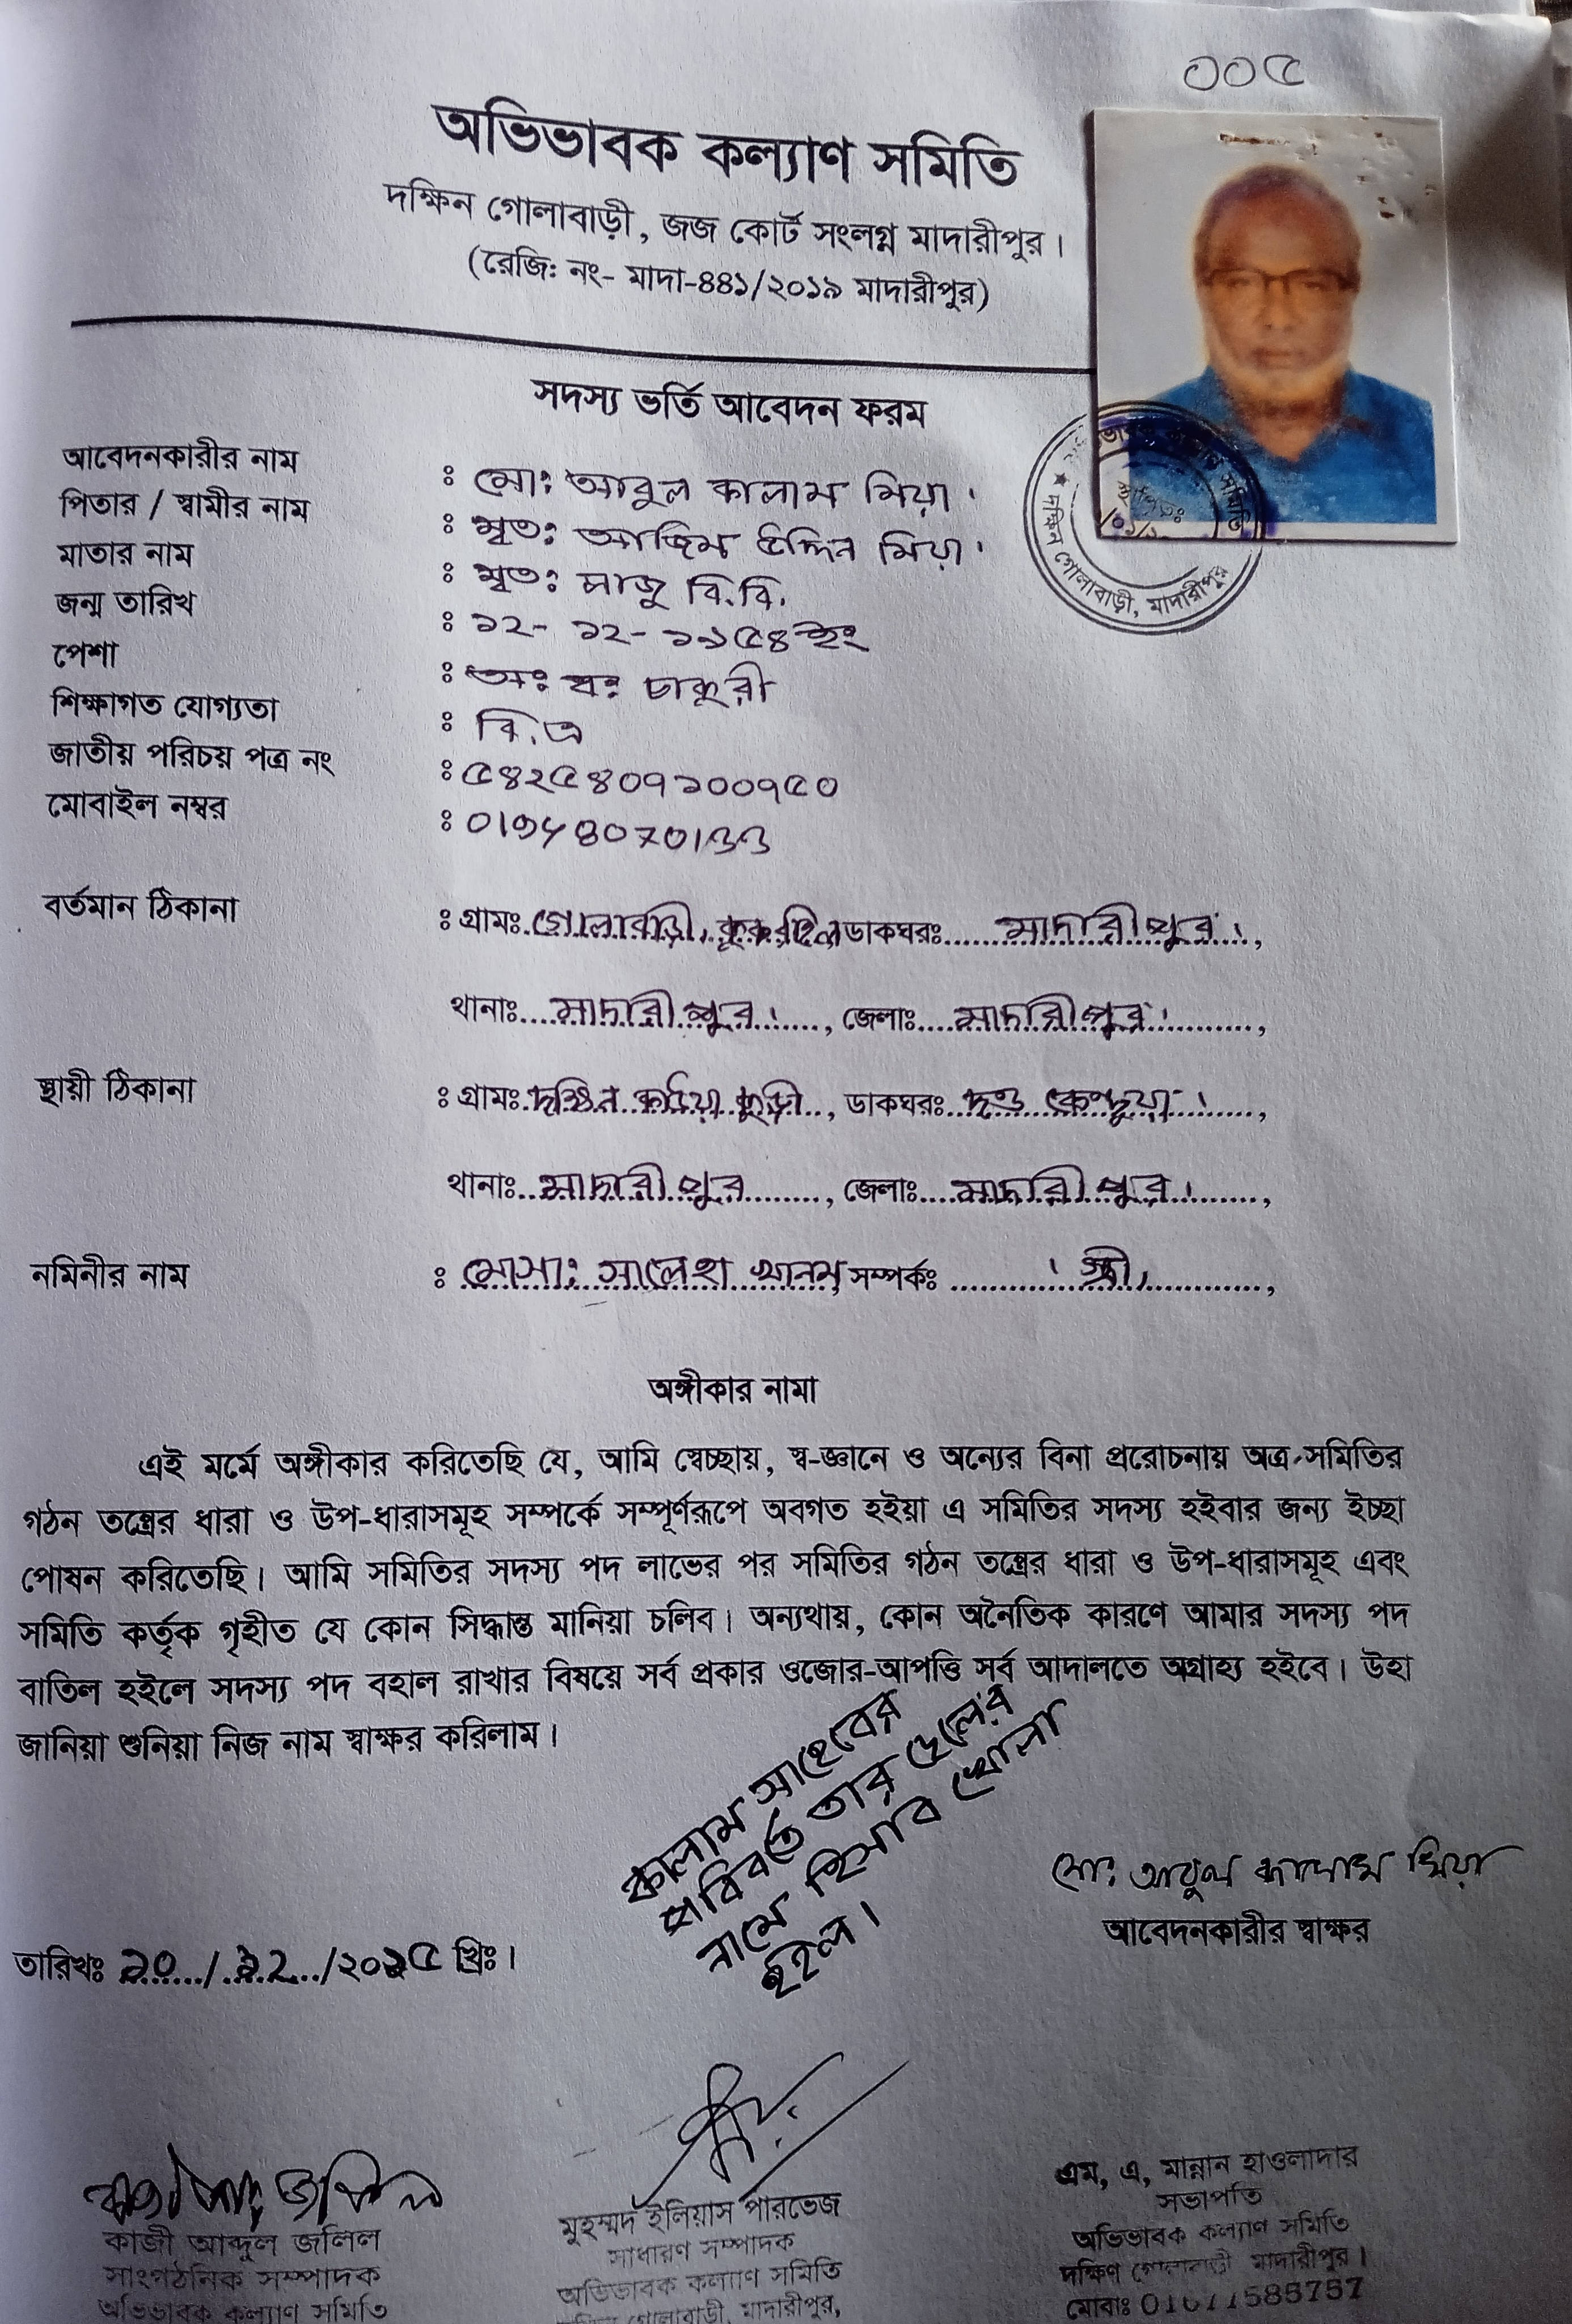 ০০৫
অভিভাবক কল্যাণ সমিতি
দক্ষিন গোলাবাড়ী, জজ কোর্ট সংলগ্ন মাদারীপুর।
(রেজি: নং- মাদা-৪৪১/২০১৯ মাদারীপুর)
সদস্য ভর্তি আবেদন ফরম
আবেদনকারীর নাম : মো: আবুল কালাম মিয়া।
পিতার / স্বামীর নাম : মৃত: আজিম উদ্দিন মিয়া।
মাতার নাম : মৃত: সাজু বি.বি.
জন্ম তারিখ : ১২- ১২- ১৯৫৪ ইং
পেশা : অ: ব: চাকুরী
শিক্ষাগত যোগ্যতা : বি.এ
জাতীয় পরিচয় পত্র নং : ৫৪২৫৪০৭১০০৭৫০
মোবাইল নম্বর :
বর্তমান ঠিকানা : গ্রামঃ গোলাবাড়ী, ডাকঘরঃ মাদারীপুর।,
থানাঃ মাদারীপুর।, জেলাঃ মাদারীপুর।,
স্থায়ী ঠিকানা : গ্রামঃ দক্ষিন, ডাকঘরঃ দত্ত কেন্দুয়া।,
থানাঃ মাদারীপুর, জেলাঃ মাদারীপুর।,
নমিনীর নাম : মোসা: সালেহা খানম, সম্পর্কঃ স্ত্রী,
অঙ্গীকার নামা
এই মর্মে অঙ্গীকার করিতেছি যে, আমি স্বেচ্ছায়, স্ব-জ্ঞানে ও অন্যের বিনা প্ররোচনায় অত্র সমিতির
গঠন তন্ত্রের ধারা ও উপ-ধারাসমূহ সম্পর্কে সম্পূর্ণরূপে অবগত হইয়া এ সমিতির সদস্য হইবার জন্য ইচ্ছা
পোষন করিতেছি। আমি সমিতির সদস্য পদ লাভের পর সমিতির গঠন তন্ত্রের ধারা ও উপ-ধারাসমূহ এবং
সমিতি কর্তৃক গৃহীত যে কোন সিদ্ধান্ত মানিয়া চলিব। অন্যথায়, কোন অনৈতিক কারণে আমার সদস্য পদ
বাতিল হইলে সদস্য পদ বহাল রাখার বিষয়ে সর্ব প্রকার ওজোর-আপত্তি সর্ব আদালতে অগ্রাহ্য হইবে। উহা
জানিয়া শুনিয়া নিজ নাম স্বাক্ষর করিলাম।
কালাম সাহেবের
পরিবর্তে তার ছেলের
নামে হিসাব খোলা
হইল।
মো: আবুল কালাম মিয়া
আবেদনকারীর স্বাক্ষর
তারিখঃ ১০/১২/২০১৫ খ্রিঃ।
কাজী আব্দুল জলিল
সাংগঠনিক সম্পাদক
অভিভাবক কল্যাণ সমিতি
মুহম্মদ ইলিয়াস পারভেজ
সাধারণ সম্পাদক
অভিভাবক কল্যাণ সমিতি
গোলাবাড়ী, মাদারীপুর,
এম, এ, মান্নান হাওলাদার
সভাপতি
অভিভাবক কল্যাণ সমিতি
দক্ষিণ গোলাবাড়ী মাদারীপুর।
মোবাঃ
দক্ষিন গোলাবাড়ী, মাদারীপুর